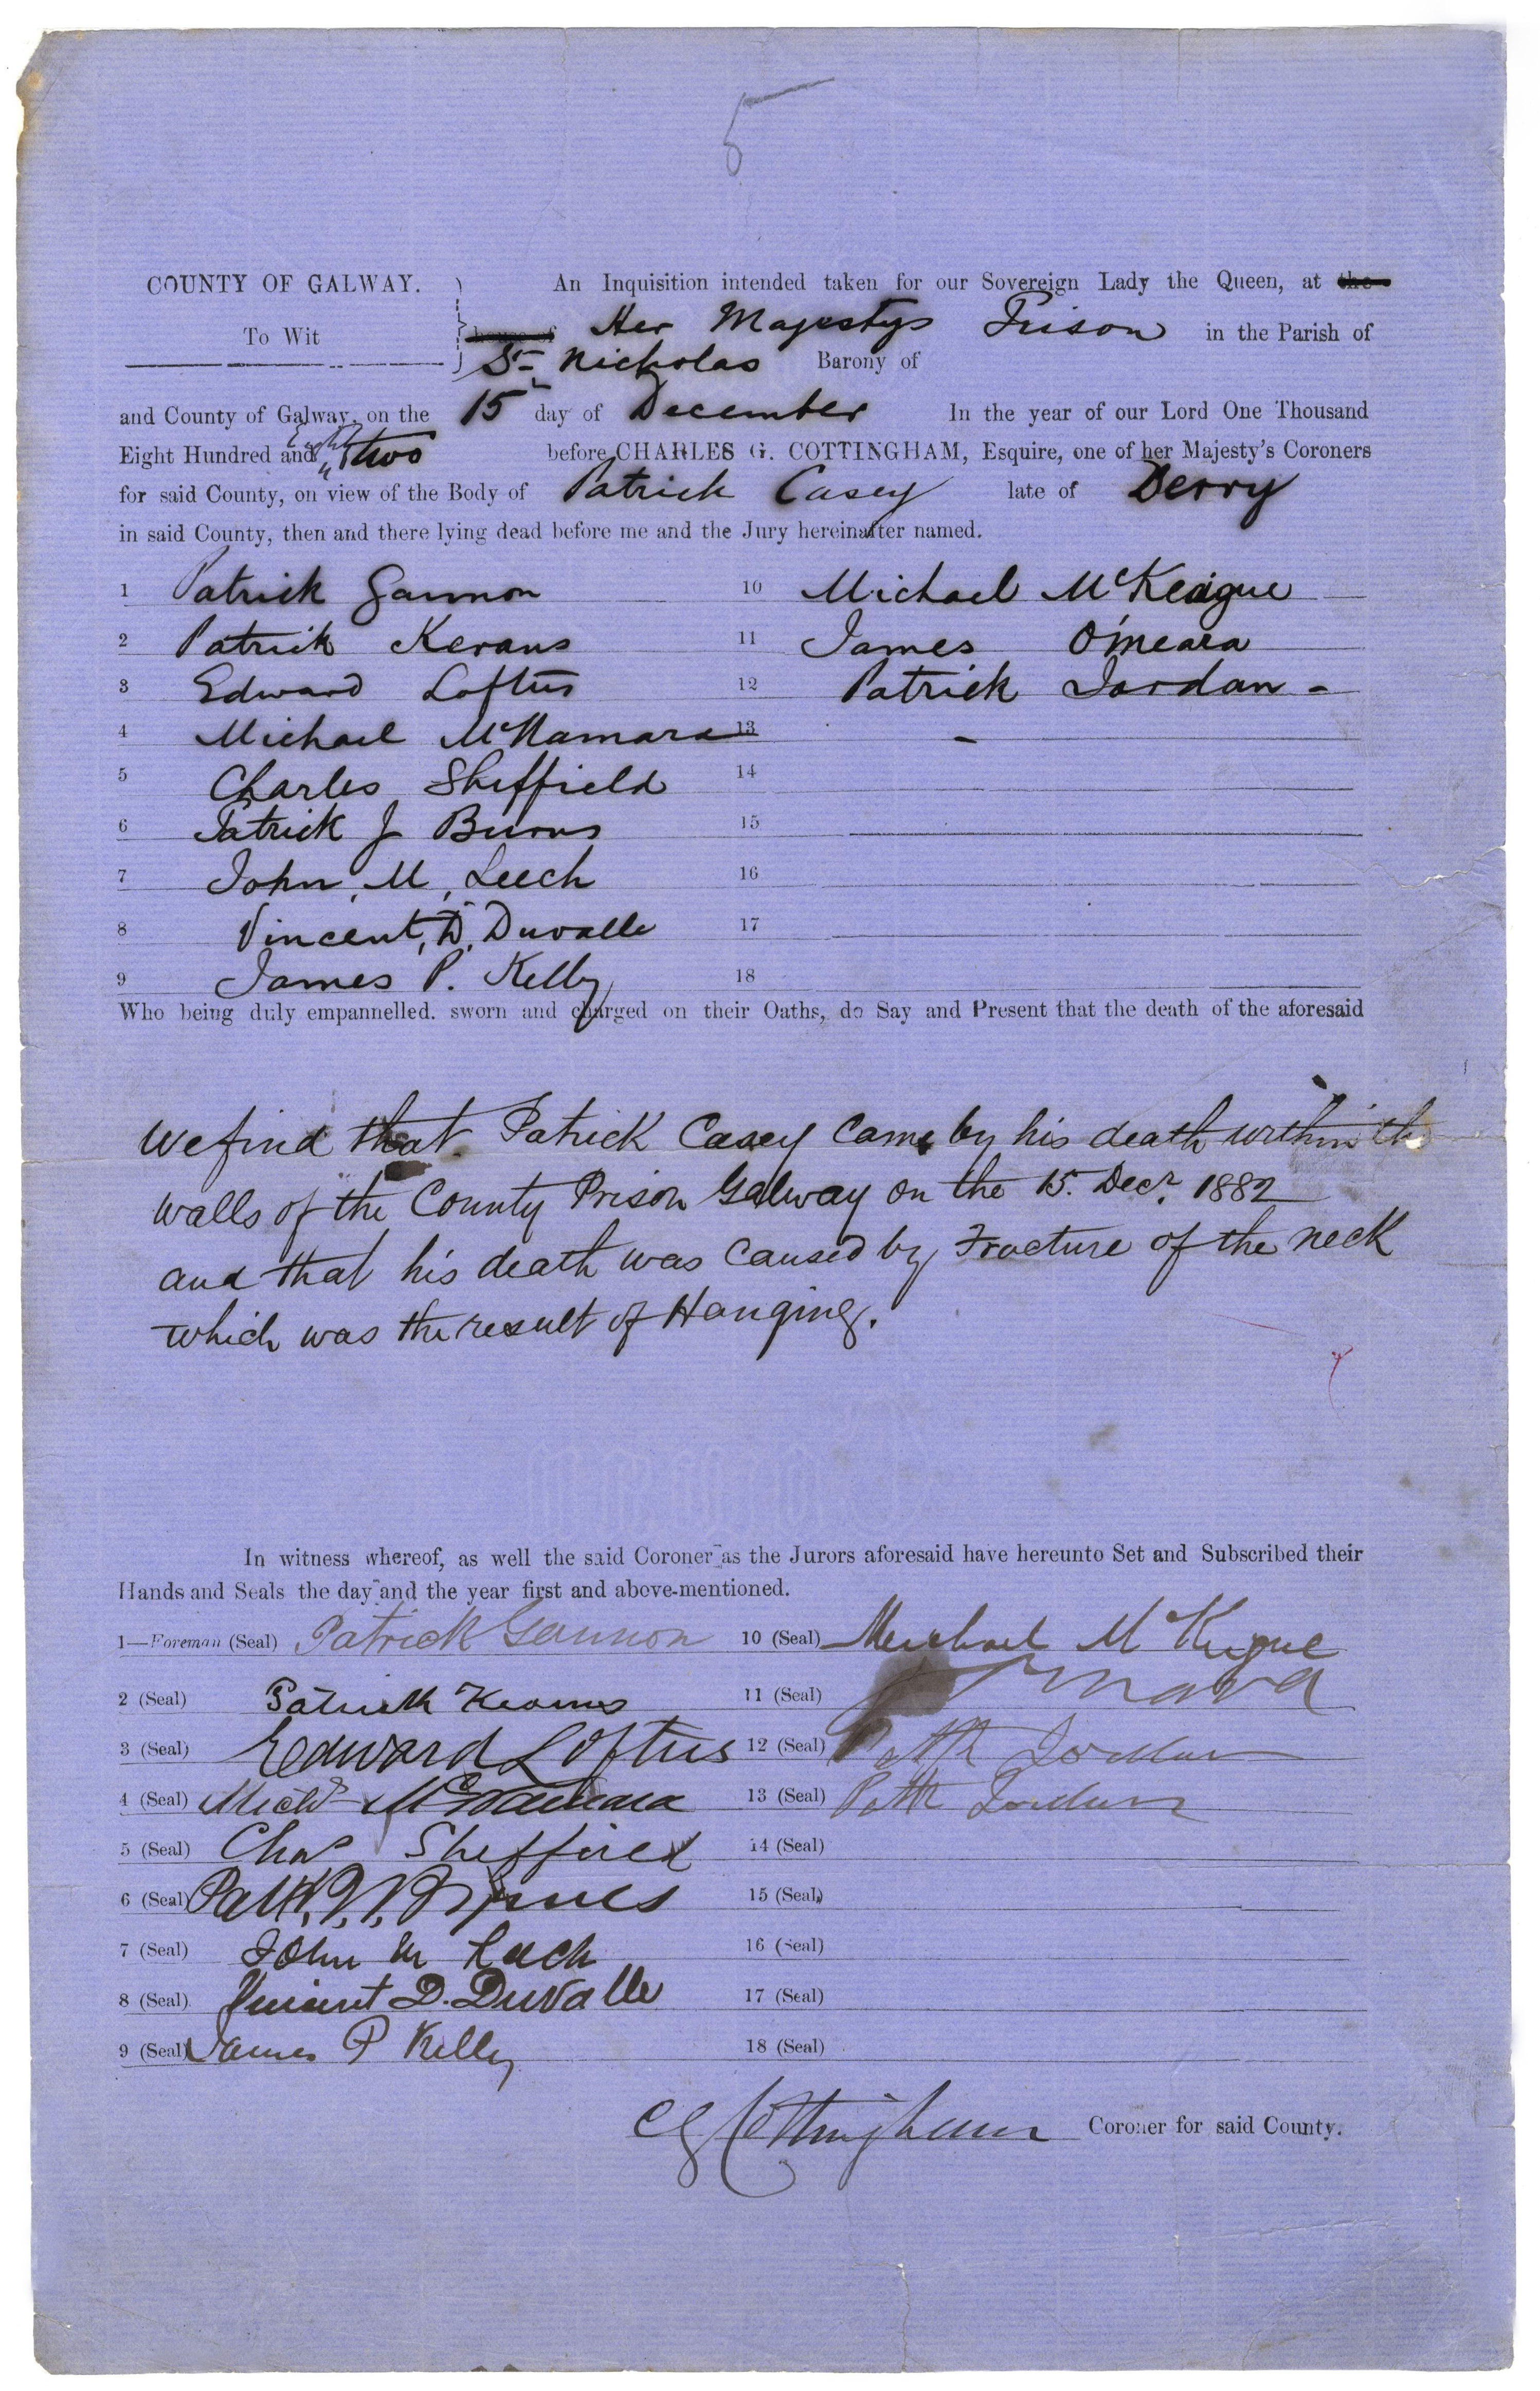 5
COUNTY OF GALWAY.
To Wit
An Inquisition intended taken for our Sovereign Lady the Queen, at the
house of Her Majestys Prison in the Parish of
St Nicholas Barony of
and County of Galway, on the 15 day of December In the year of our Lord One Thousand
Eight Hundred and Eighty two before CHARLES G. COTTINGHAM, Esquire, one of her Majesty's Coroners
for said County, on view of the Body of Patrick Casey late of Derry
in said County, then and there lying dead before me and the Jury hereinafter named.
1 Patrick Gannon
2 Patrick Kerans
3 Edward Loftus
4 Michael McNamara
5 Charles Sheffield
6 Patrick J Burns
7 John, M, Leech
8 Vincent, D, Duvalle
9 James P. Kelly
10 Michael McKeague
11 James O'Meara
12 Patrick Jordan -
13 -
14
15
16
17
18
Who being duly empannelled. sworn and charged on their Oaths, do Say and Present that the death of the aforesaid
We find that Patrick Casey Came by his death within the
walls of the County Prison Galway on the 15. Decr. 1882
and that his death was Caused by Fracture of the neck
which was the result of Hanging.
In witness whereof, as well the said Coroner as the Jurors aforesaid have hereunto Set and Subscribed their
Hands and Seals the day and the year first and above-mentioned.
1—Foreman (Seal) Patrick Gannon
2 (Seal) Patrick
3 (Seal) Edward Loftus
4 (Seal) Michl McNamara
5 (Seal) Chas Sheffield
6 (Seal) Patk. J. Byrnes
7 (Seal) John M Leech
8 (Seal) Vincent D. Duvalle
9 (Seal) James P Kelly
10 (Seal) Michael
11 (Seal)
12 (Seal) Patk Jordan
13 (Seal) Patk Jordan
14 (Seal)
15 (Seal)
16 (Seal)
17 (Seal)
18 (Seal)
CG Cottingham Coroner for said County.